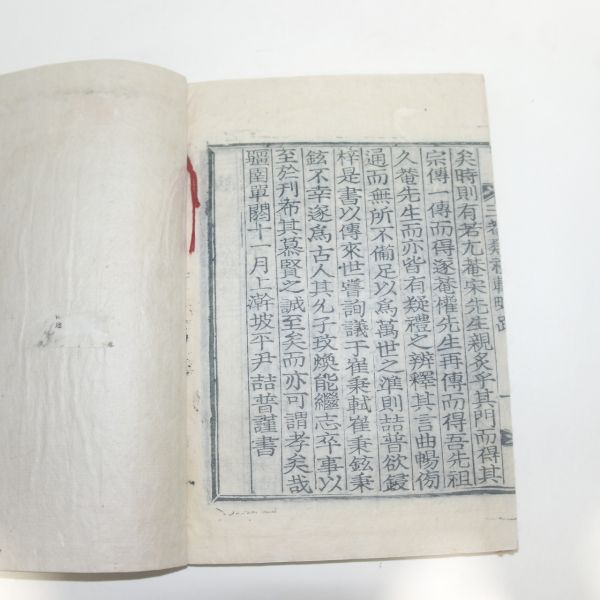 矣時則有若尤菴宋先生親炙乎其門而得其
宗傳一傳而得遂菴權先生再傳而得吾先祖
久菴先生而亦皆有疑禮之辨釋其言曲暢傍
通而無所不備足以爲萬世之準則喆普欲鋟
梓是書以傳來世嘗詢議于崔秉軾崔秉鉉秉
鉉不幸遂爲古人其允子玟煥能繼志卒事以
至於刊布其慕賢之誠至矣而亦可謂孝矣哉
彊圉單閼十一月上澣坡平尹喆普謹書